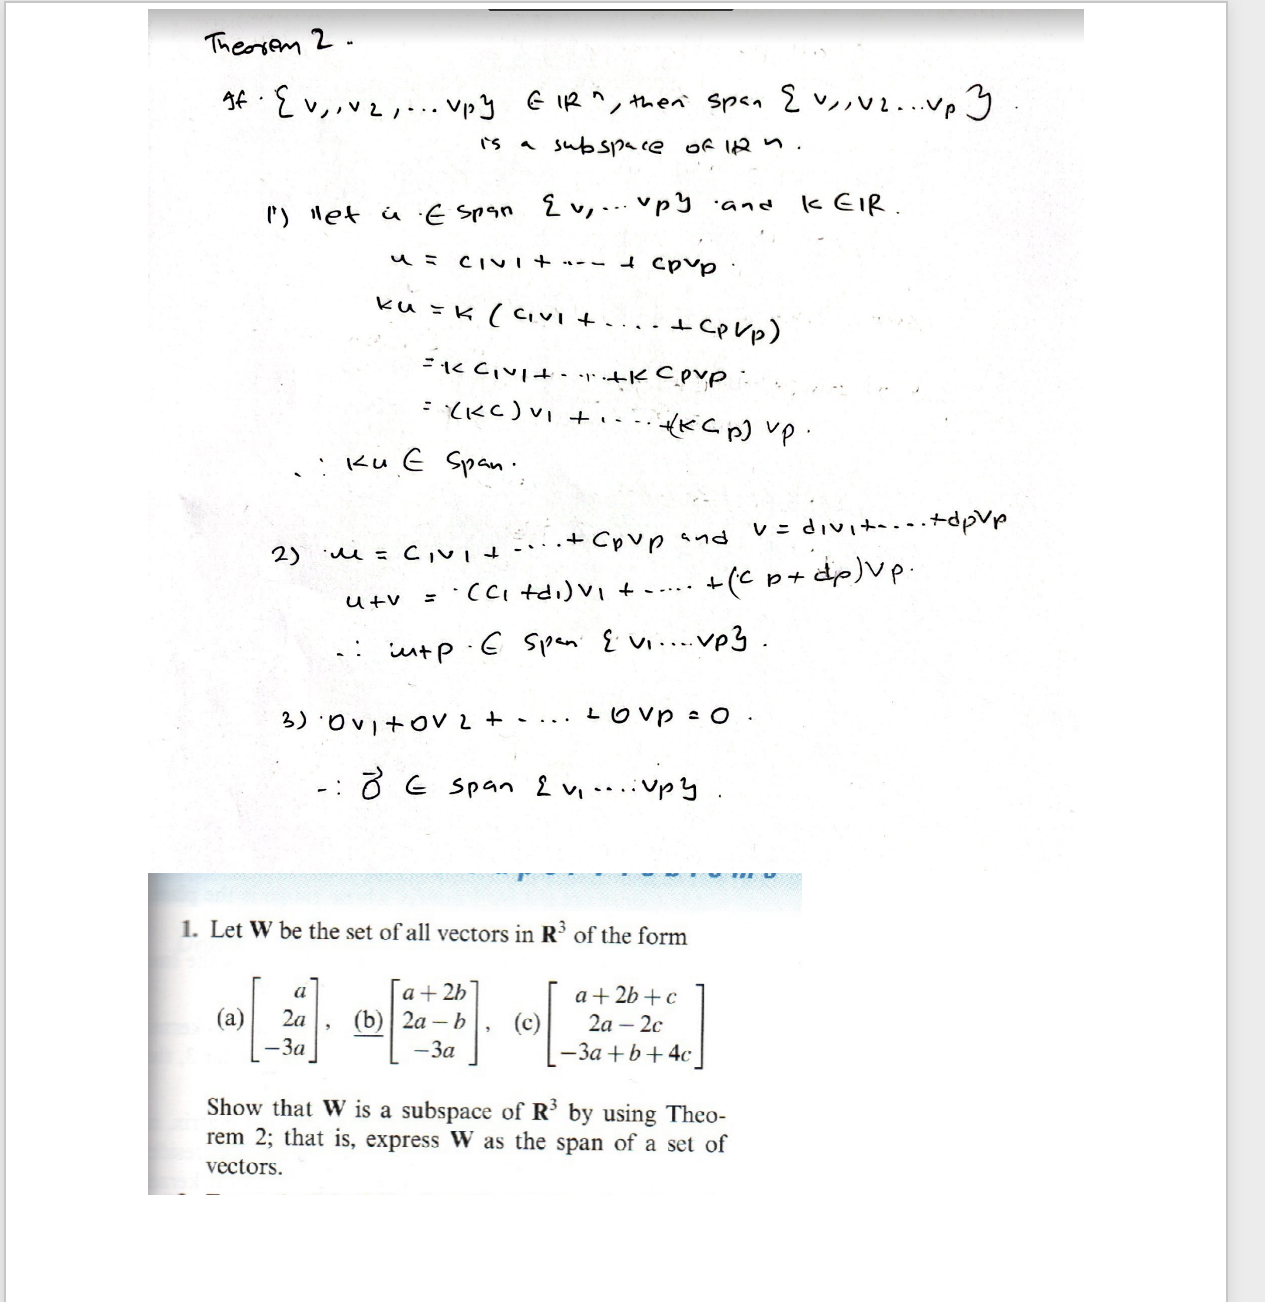 Theorem 2.
If {v1, v2, ... vp} ∈ IR^n, then span {v1, v2 ... vp}
is a subspace of IR n.
1) let u ∈ span {v1 ... vp} and k ∈ IR.
u = c1v1 + ---- + cpvp.
ku = k (c1v1 + .... + cpvp)
= k c1v1 + ..... + k cpvp
= (kc) v1 + ..... + (kcp) vp.
∴ ku ∈ span.
2) u = c1v1 + ..... + cpvp and v = d1v1 + ..... + dpvp
u+v = (c1+d1)v1 + ...... + (cp+dp)vp.
∴ u+p ∈ span {v1....vp}.
3) 0v1+0v2 + .... + 0vp = 0.
∴ 0⃗ ∈ span {v1 .....vp}.
1. Let W be the set of all vectors in R³ of the form
(a) [a 2a −3a], (b) [a + 2b 2a − b −3a], (c) [a + 2b + c 2a − 2c −3a + b + 4c]
Show that W is a subspace of R³ by using Theo-
rem 2; that is, express W as the span of a set of
vectors.